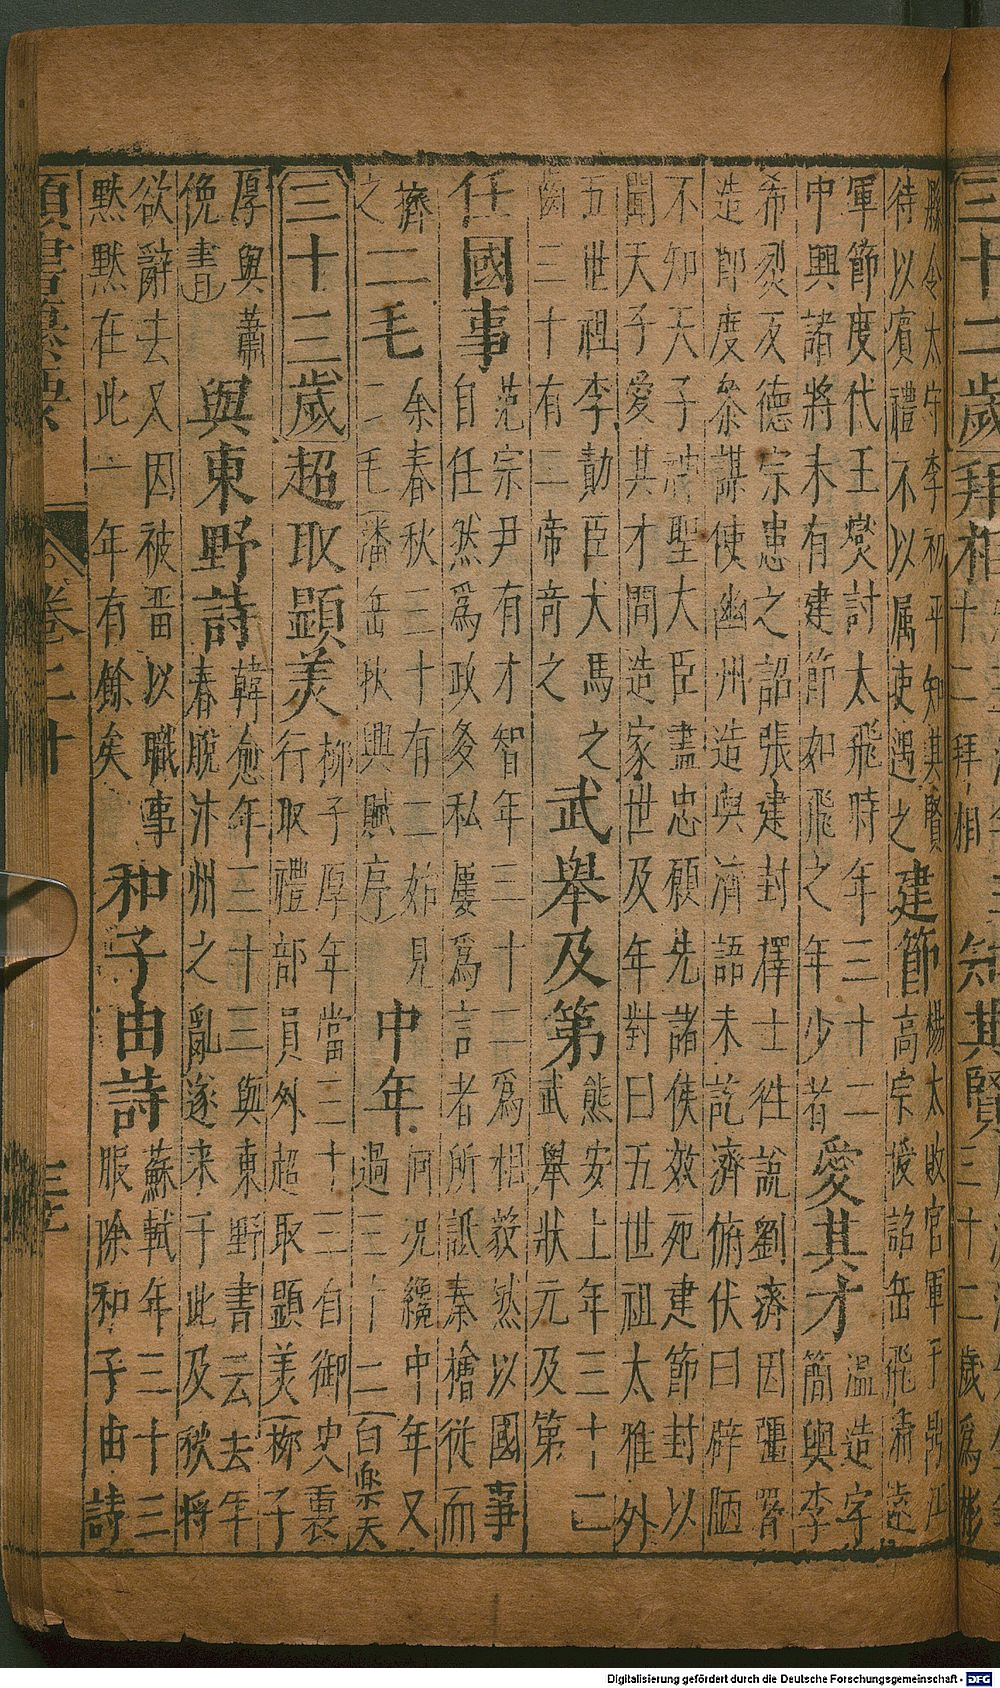 三十二歲拜相
十二拜相
知其賢
三十二歲爲彬
縣令太守李初平知其賢
待以賓禮不以属吏遇之
建節
楊太敗官軍于鼎江
高宗授詔岳飛清遠
軍節度代王燮討太飛時年三十二
中興諸將未有建節如飛之年少者
愛其才
温造字
簡輿李
希烈反德宗患之詔張建封擇士徃說劉濟因彊署
造節度叅謀使幽州造與濟語未訖濟俯伏曰辟陋
不知天子神聖大臣盡忠願先諸侯效死建節封以
聞天子愛其才問造家世及年對曰五世祖太雅外
五世祖李勣臣犬馬之
齒三十有二帝竒之
武舉及第
熊安上年三十二
武舉狀元及第
任國事
范宗尹有才智年三十二爲相毅然以國事
自任然爲政多私屢爲言者所詆秦檜從而
擠
之
二毛
余春秋三十有二始見
二毛潘岳秋興賦序
中年
何况纔中年又
過三十二白樂天
三十三歲
超取顕美
柳子厚年當三十三自御史裏
行取禮部員外超取顕美柳子
厚與蕭
俛書
與東野詩
韓愈年三十三與東野書云去年
春脫汴州之亂遂来于此及秋將
欲辭去又因被畱以職事
黙黙在此一年有餘矣
和子由詩
蘇軾年三十三
服除和子由詩
卷二十
Digitalisierung gefördert durch die Deutsche Forschungsgemeinschaft - DFG